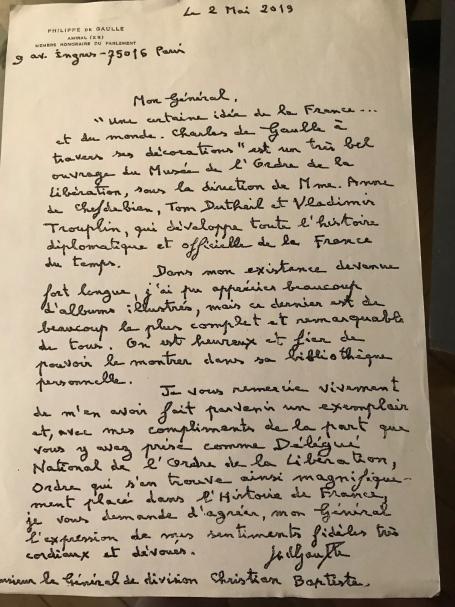 Le 2 Mai 2019
PHILIPPE DE GAULLE
AMIRAL (2S)
MEMBRE HONORAIRE DU PARLEMENT
9 av. Ingres - 75016 Paris
Mon Général,
"Une certaine idée de la France...
et du monde. Charles de Gaulle à
travers ses décorations" est un très bel
ouvrage du Musée de l'Ordre de la
Libération, sous la direction de Mme. Anne
de Chefdebien, Tom Dutheil et Vladimir
Trouplin, qui développe toute l'histoire
diplomatique et officielle de la France
du temps.
Dans mon existence devenue
fort longue, j'ai pu apprécier beaucoup
d'albums illustrés, mais ce dernier est de
beaucoup le plus complet et remarquable
de tous. On est heureux et fier de
pouvoir le montrer dans sa bibliothèque
personnelle.
Je vous remercie vivement
de m'en avoir fait parvenir un exemplair
et, avec mes compliments de la part que
vous y avez prise comme Délégué
National de l'Ordre de la Libération,
Ordre qui s'en trouve ainsi magnifique-
ment placé dans l'Histoire de France,
je vous demande d'agréer, mon Général
l'expression de mes sentiments fidèles très
cordiaux et dévoués.
le Général de division Christian Baptiste.